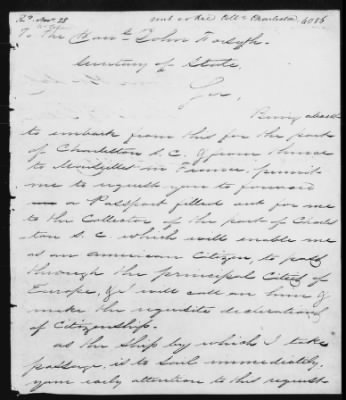 Rd. Nov 28
sent to the Collr Charleston 4086
To The Honle. John Forsyth.
Secretary of State.
Sir,
Being about
to embark from this for the port
of Charleston S. C. & from thence
to in France, permit
me to request you to forward
a Passport filled out for me
to the Collector of the port of Charles
ton S. C which will enable me
as an American Citizen, to pass
through the principal Cities of
Europe, & I will call on him &
make the requisite declaration
of Citizenship.
As the Ship by which I take
passage, is to sail immediately,
your early attention to this request